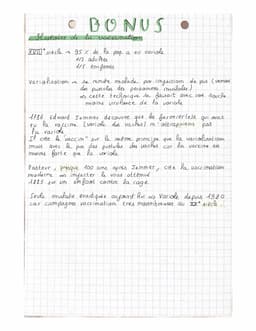 BONUS
Histoire de la vaccination
XVIII° siècle → 95% de la pop. a eu variole
1/3 adultes
1/5 enfants
Variolisation → se rendre malade par injection de pus (venant
des pustules des personnes malades)
→ cette technique se faisait avec une souche
moins virulente de la variole
1796 Edward Jenner découvre que les fermières qui ont
eu la vaccine (variole des vaches) n'attrapaient pas
la variole
Il crée le "vaccin" sur le même principe que la variolisation
mais avec le pus des pustules des vaches car la vaccine est
moins forte que la variole
Pasteur, presque 100 ans après Jenner, crée la vaccination
moderne → injecter le virus atténué
1885 sur un enfant contre la rage.
Seule maladie éradiquée aujourd'hui → Variole depuis 1980
car campagnes vaccination très nombreuses au XX° siècle